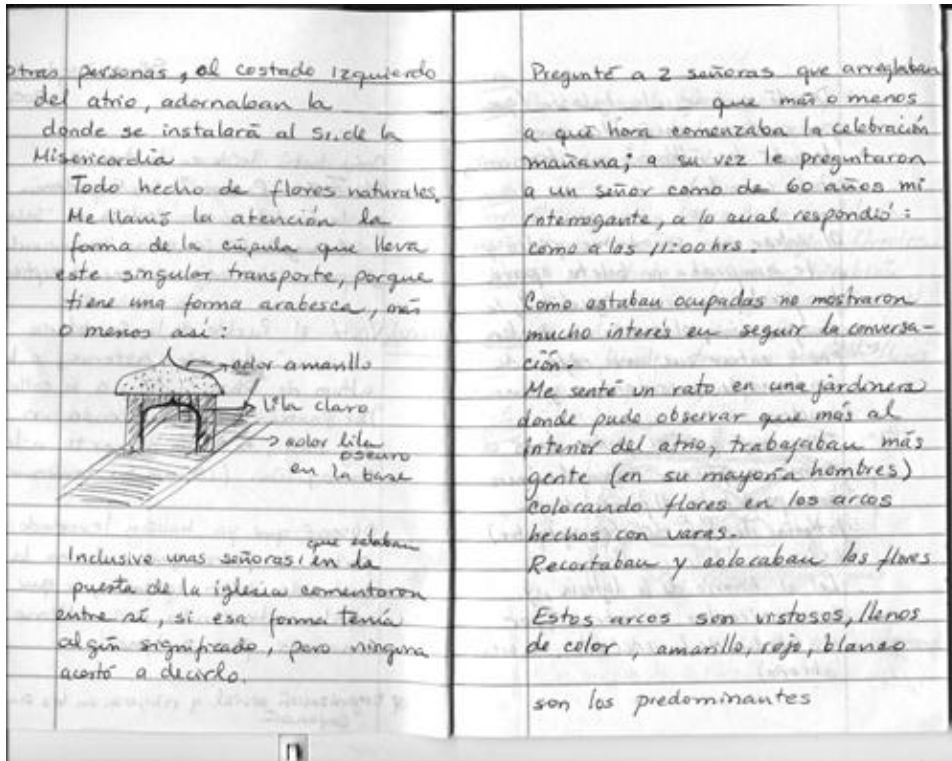 otras personas, al costado izquierdo
del atrio, adornaban la
donde se instalará al Sr. de la
Misericordia
Todo hecho de flores naturales.
Me llamó la atención la
forma de la cúpula que lleva
este singular transporte, porque
tiene una forma arabesca, más
o menos así:
color amarillo
lila claro
color lila
oscuro
en la base
que estaban
Inclusive unas señoras, en la
puerta de la iglesia comentaron
entre sí, si esa forma tenía
algún significado, pero ninguna
acertó a decirlo.
Pregunté a 2 señoras que arreglaban
que más o menos
a qué hora comenzaba la celebración
mañana; a su vez le preguntaron
a un señor como de 60 años mi
interrogante, a lo cual respondió:
como a las 11:00 hrs.
Como estaban ocupadas no mostraron
mucho interés en seguir la conversa-
ción.
Me senté un rato en una jardinera
donde pude observar que más al
interior del atrio, trabajaban más
gente (en su mayoría hombres)
colocando flores en los arcos
hechos con varas.
Recortaban y colocaban las flores
Estos arcos son vistosos, llenos
de color, amarillo, rojo, blanco
son los predominantes